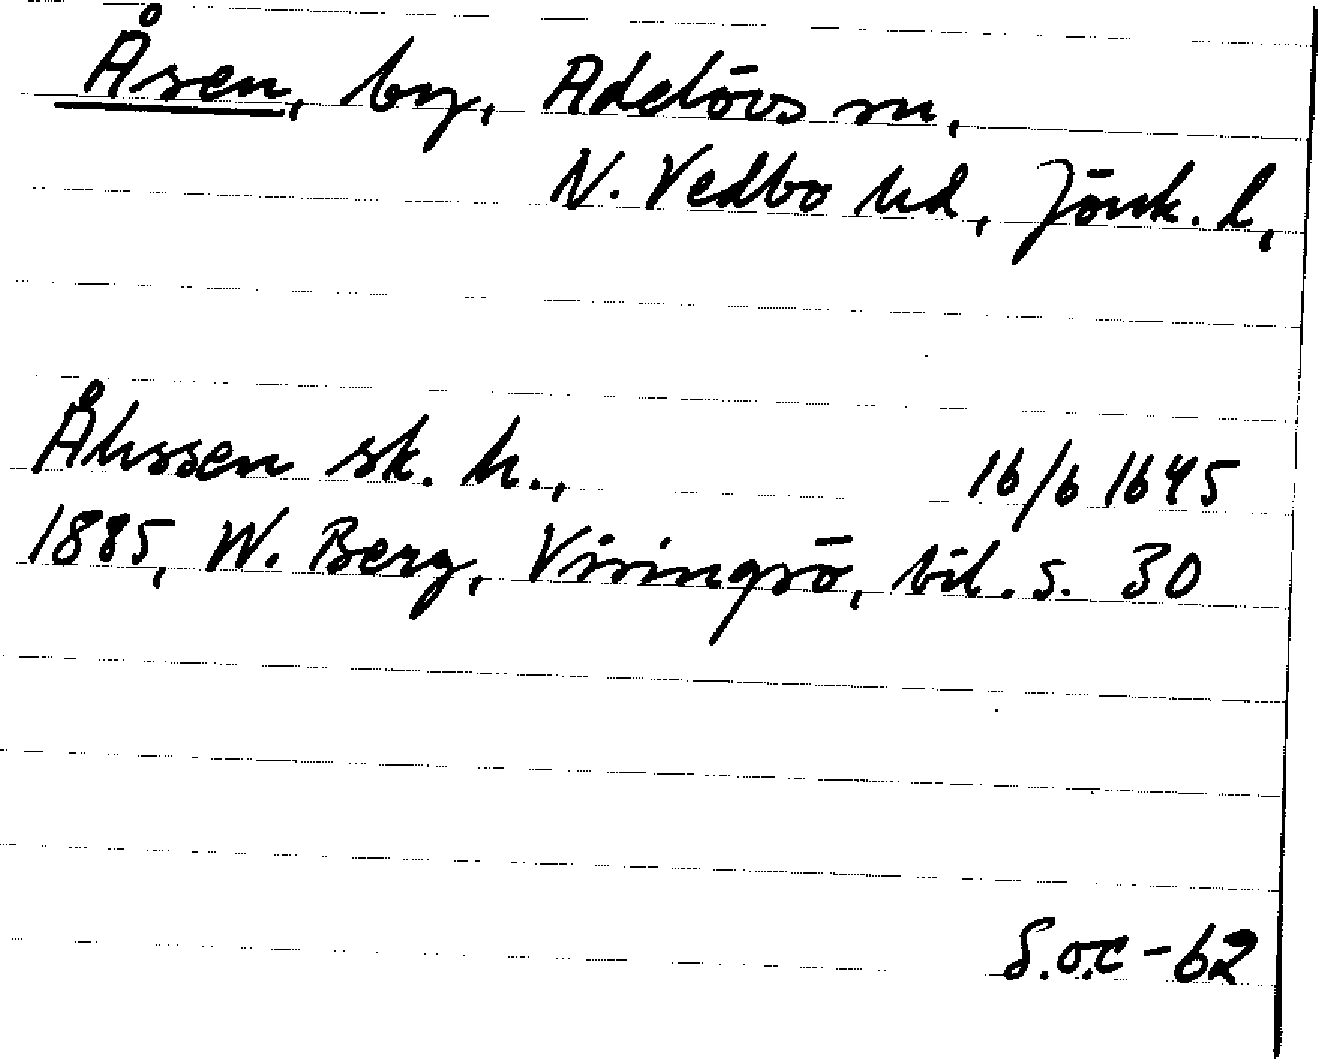 Åsen, by, Adelövs sn,
N. Vedbo hd, Jönk. l,
Åhssen sk. h., 16/6 1645
1885, W. Berg, Visingsö, bil. s. 30
S.o.c - 62